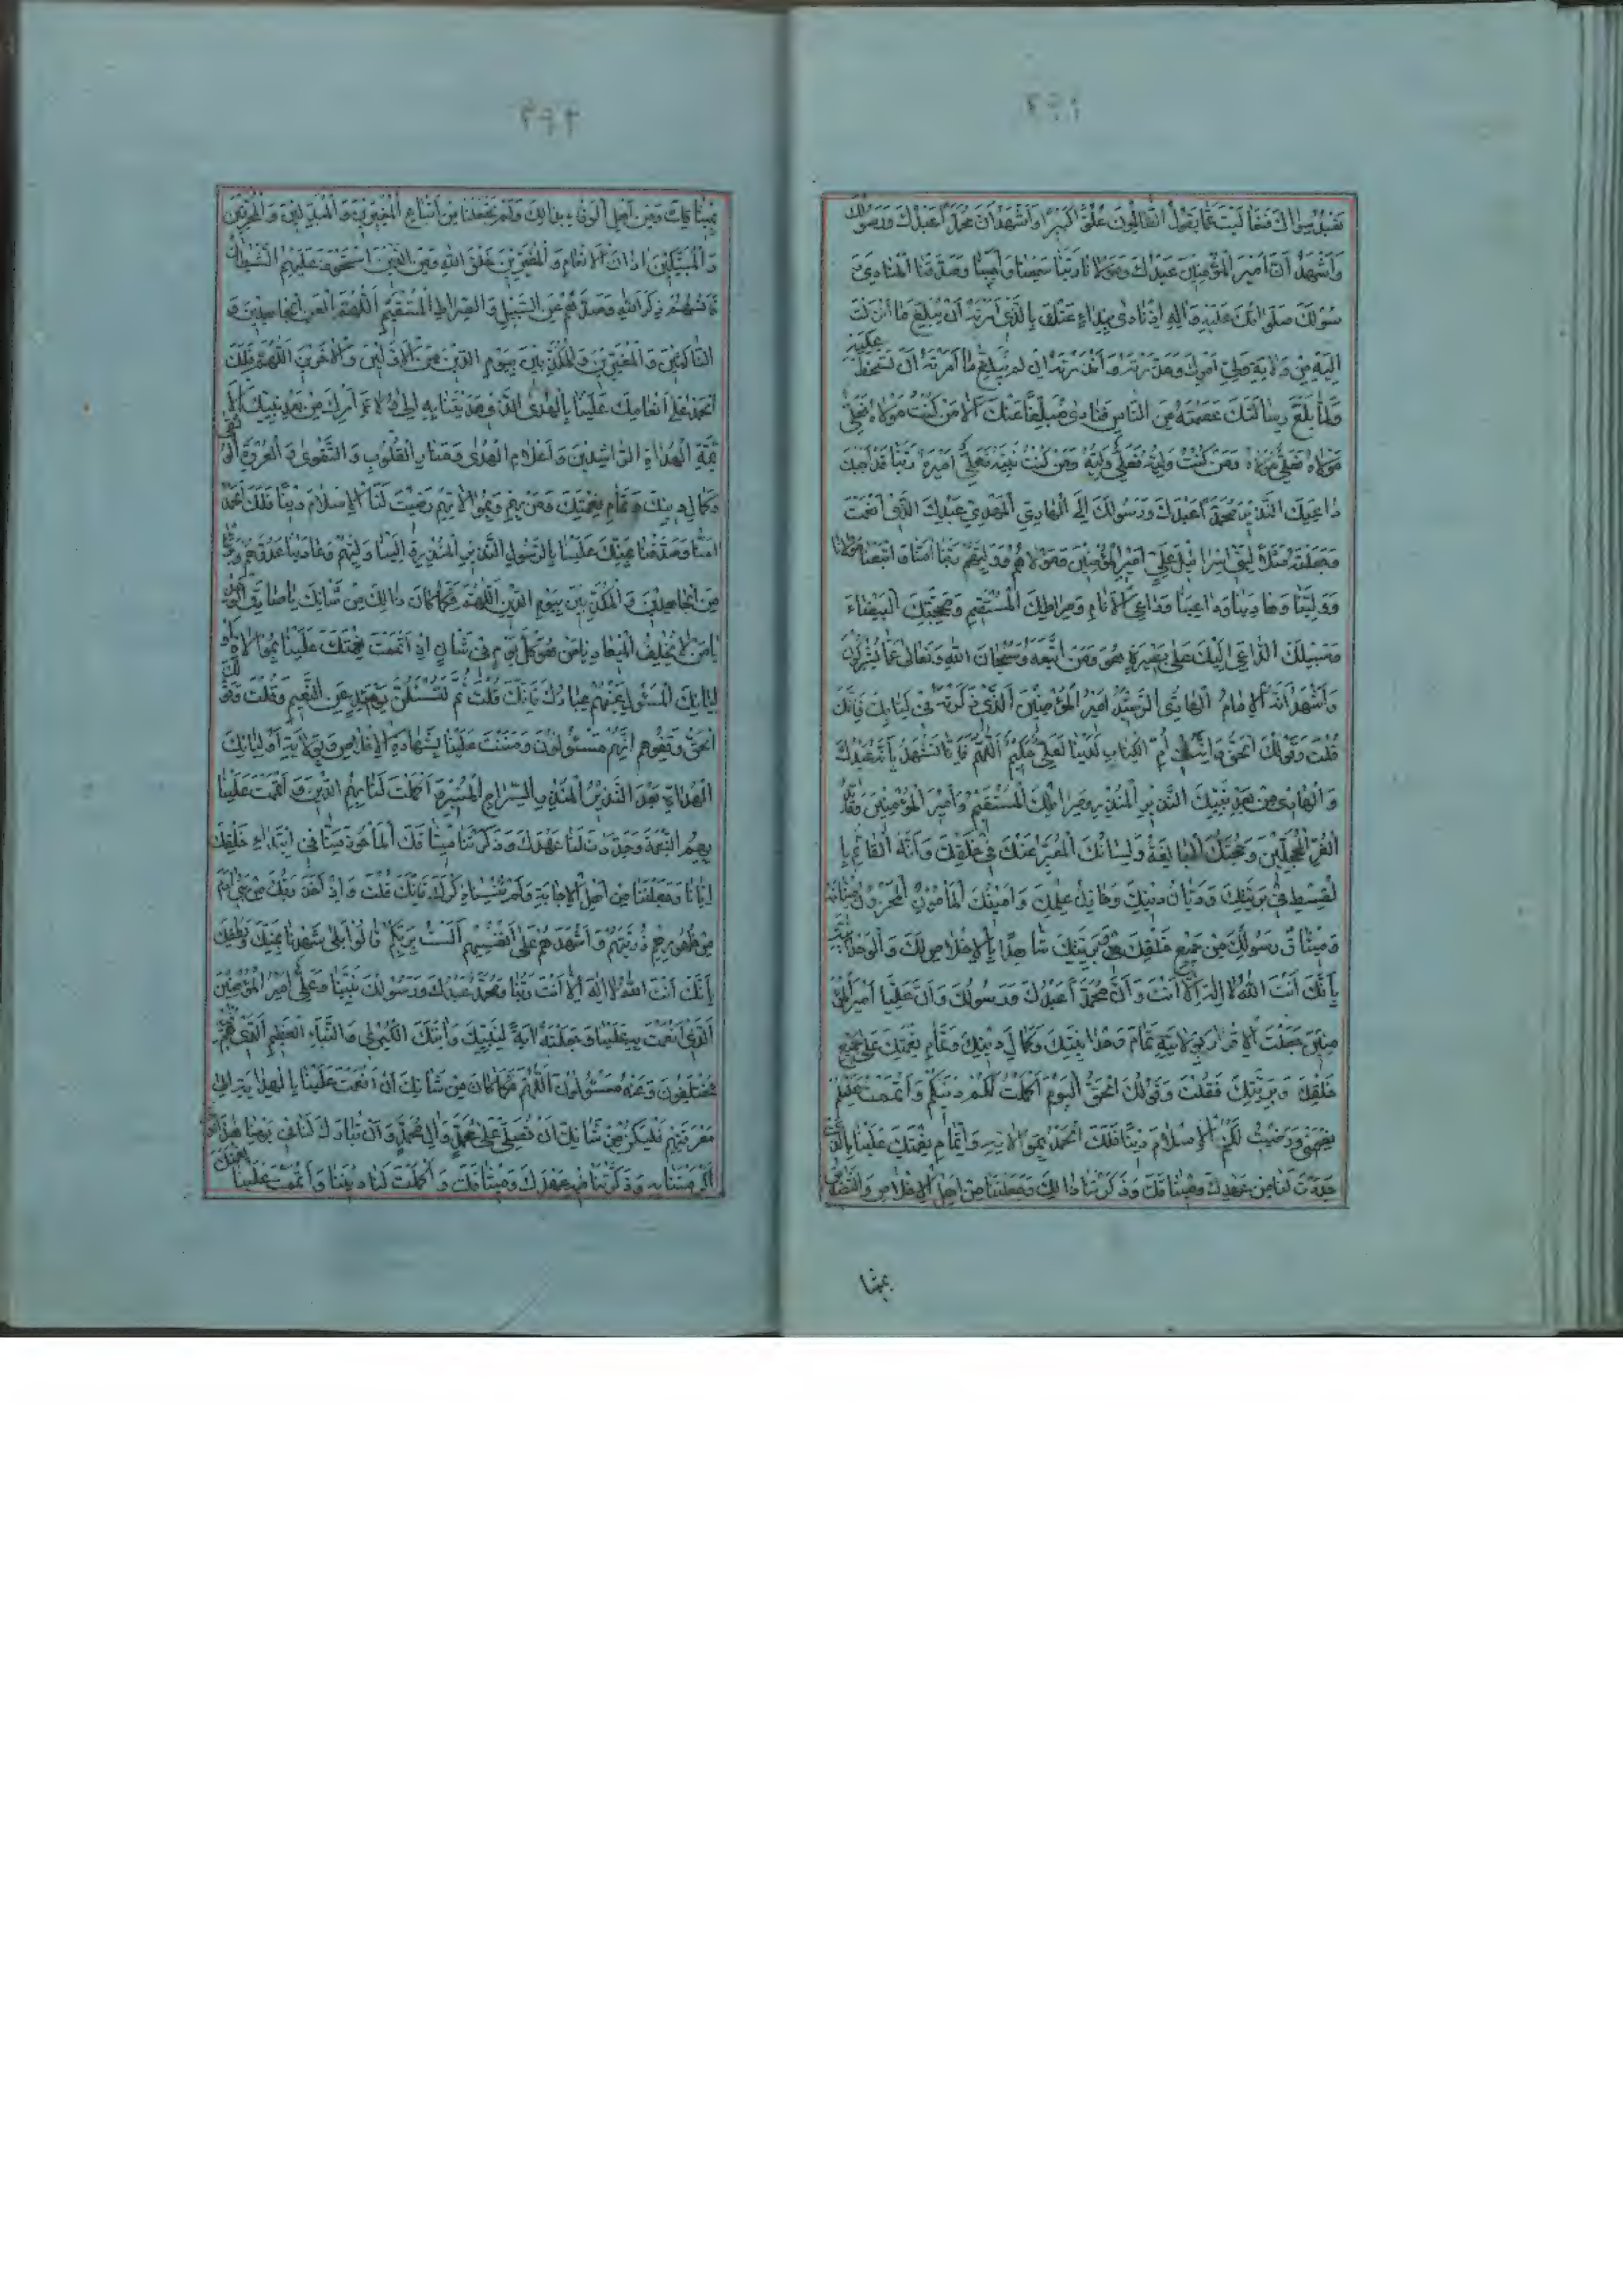 ٢٩١
نَعْبُدُ سِوٰاكَ فَتَعٰالَيْتَ عَمّٰا يَقُولُ الظّٰالِمُونَ عُلُوًّا كَبِيرًا وَاَشْهَدُ اَنَّ مُحَمَّدًا عَبْدُكَ وَرَسُولُكَ
وَاَشْهَدُ اَنَّ اَمِيرَ الْمُؤْمِنِينَ عَبْدُكَ وَمَوْلٰانٰا رَبَّنٰا سَمِعْنٰا وَاَجَبْنٰا وَصَدَّقْنَا الْمُنٰادِيَ
رَسُولَكَ صَلَّى اللهُ عَلَيْهِ وَاٰلِهِ اِذْ نٰادٰى بِنِدٰاءٍ عَنْكَ بِالَّذِي اَمَرْتَهُ اَنْ يُبَلِّغَ مٰا اَنْزَلْتَ
اِلَيْهِ مِنْ وِلٰايَةِ وَلِيِّ اَمْرِكَ وَحَذَّرْتَهُ وَاَنْذَرْتَهُ اِنْ لَمْ يُبَلِّغْ مٰا اَمَرْتَهُ اَنْ تَسْخَطَ عَلَيْهِ
وَلَمّٰا بَلَّغَ رِسٰالَتَكَ عَصَمْتَهُ مِنَ النّٰاسِ فَنٰادٰى مُبَلِّغًا عَنْكَ اَلٰا مَنْ كُنْتُ مَوْلٰاهُ فَعَلِيٌّ
مَوْلٰاهُ وَمَنْ كُنْتُ وَلِيَّهُ فَعَلِيٌّ وَلِيُّهُ وَمَنْ كُنْتُ نَبِيَّهُ فَعَلِيٌّ اَمِيرُهُ رَبَّنٰا قَدْ اَجَبْنٰا
دٰاعِيَكَ النَّذِيرَ مُحَمَّدًا عَبْدَكَ وَرَسُولَكَ اِلَى الْهٰادِي الْمَهْدِيِّ عَبْدِكَ الَّذِي اَنْعَمْتَ
وَجَعَلْتَهُ مَثَلًا لِبَنِي اِسْرٰائِيلَ عَلِيٍّ اَمِيرِ الْمُؤْمِنِينَ وَمَوْلٰاهُمْ وَوَلِيِّهِمْ رَبَّنٰا اٰمَنّٰا وَاتَّبَعْنٰا مَوْلٰانٰا
وَوَلِيَّنٰا وَهٰادِيَنٰا وَدٰاعِيَنٰا وَدٰاعِيَ الْاَنٰامِ وَصِرٰاطَكَ الْمُسْتَقِيمَ وَحُجَّتَكَ الْبَيْضٰاءَ
وَسَبِيلَكَ الدّٰاعِيَ اِلَيْكَ عَلٰى بَصِيرَةٍ هُوَ وَمَنِ اتَّبَعَهُ وَسُبْحٰانَ اللهِ وَتَعٰالٰى عَمّٰا يُشْرِكُونَ
وَاَشْهَدُ اَنَّهُ الْاِمٰامُ الْهٰادِي الرَّشِيدُ اَمِيرُ الْمُؤْمِنِينَ الَّذِي ذَكَرْتَهُ فِي كِتٰابِكَ فَاِنَّكَ
قُلْتَ وَقَوْلُكَ الْحَقُّ وَاِنَّهُ فِي اُمِّ الْكِتٰابِ لَدَيْنٰا لَعَلِيٌّ حَكِيمٌ اَللّٰهُمَّ فَاِنّٰا نَشْهَدُ بِاَنَّهُ عَبْدُكَ
وَالْهٰادِي مِنْ بَعْدِ نَبِيِّكَ النَّذِيرِ الْمُنْذِرِ وَصِرٰاطُكَ الْمُسْتَقِيمُ وَاَمِيرُ الْمُؤْمِنِينَ وَقٰائِدُ
الْغُرِّ الْمُحَجَّلِينَ وَحُجَّتُكَ الْبٰالِغَةُ وَلِسٰانُكَ الْمُعَبِّرُ عَنْكَ فِي خَلْقِكَ وَاَنَّهُ الْقٰائِمُ بِا
لْقِسْطِ فِي بَرِيَّتِكَ وَدَيّٰانُ دِينِكَ وَخٰازِنُ عِلْمِكَ وَاَمِينُكَ الْمَأْمُونُ الْمَأْخُوذُ مِيثٰاقُهُ
وَمِيثٰاقُ رَسُولِكَ مِنْ جَمِيعِ خَلْقِكَ وَبَرِيَّتِكَ شٰاهِدًا بِالْاِخْلٰاصِ لَكَ وَالْوَحْدٰانِيَّةِ
بِاَنَّكَ اَنْتَ اللهُ لٰا اِلٰهَ اِلّٰا اَنْتَ وَاَنَّ مُحَمَّدًا عَبْدُكَ وَرَسُولُكَ وَاَنَّ عَلِيًّا اَمِيرُ الْمُؤْ
مِنِينَ جَعَلْتَ الْاِقْرٰارَ بِوِلٰايَتِهِ تَمٰامَ وَحْدٰانِيَّتِكَ وَكَمٰالَ دِينِكَ وَتَمٰامَ نِعْمَتِكَ عَلٰى جَمِيعِ
خَلْقِكَ وَبَرِيَّتِكَ فَقُلْتَ وَقَوْلُكَ الْحَقُّ الْيَوْمَ اَكْمَلْتُ لَكُمْ دِينَكُمْ وَاَتْمَمْتُ عَلَيْكُمْ
نِعْمَتِي وَرَضِيتُ لَكُمُ الْاِسْلٰامَ دِينًا فَلَكَ الْحَمْدُ بِمُوٰالٰاتِهِ وَاِتْمٰامِ نِعْمَتِكَ عَلَيْنٰا بِالَّذِي
جَدَّدْتَ لَنٰا مِنْ عَهْدِكَ وَمِيثٰاقِكَ وَذَكَّرْتَنٰا ذٰلِكَ وَجَعَلْتَنٰا مِنْ اَهْلِ الْاِخْلٰاصِ وَالتَّصْدِيقِ
بمیثا
٢٩٢
بِمِيثٰاقِكَ وَمِنْ اَهْلِ الْوَفٰاءِ بِذٰلِكَ وَلَمْ تَجْعَلْنٰا مِنْ اَتْبٰاعِ الْمُغَيِّرِينَ وَالْمُبَدِّلِينَ وَالْمُحَرِّفِينَ
وَالْمُبَتِّكِينَ اٰذٰانَ الْاَنْعٰامِ وَالْمُغَيِّرِينَ خَلْقَ اللهِ وَمِنَ الَّذِينَ اسْتَحْوَذَ عَلَيْهِمُ الشَّيْطٰانُ
فَاَنْسٰاهُمْ ذِكْرَ اللهِ وَصَدَّهُمْ عَنِ السَّبِيلِ وَالصِّرٰاطِ الْمُسْتَقِيمِ اَللّٰهُمَّ الْعَنِ الْجٰاحِدِينَ وَ
النّٰاكِثِينَ وَالْمُغَيِّرِينَ وَالْمُكَذِّبِينَ بِيَوْمِ الدِّينِ مِنَ الْاَوَّلِينَ وَالْاٰخِرِينَ اَللّٰهُمَّ فَلَكَ
الْحَمْدُ عَلٰى اِنْعٰامِكَ عَلَيْنٰا بِالْهُدَى الَّذِي هَدَيْتَنٰا بِهِ اِلٰى وُلٰاةِ اَمْرِكَ مِنْ بَعْدِ نَبِيِّكَ الْاَ
ئِمَّةِ الْهُدٰاةِ الرّٰاشِدِينَ وَاَعْلٰامِ الْهُدٰى وَمَنٰارِ الْقُلُوبِ وَالتَّقْوٰى وَالْعُرْوَةِ الْوُثْقٰى
وَكَمٰالِ دِينِكَ وَتَمٰامِ نِعْمَتِكَ وَمَنْ بِهِمْ وَبِمُوٰالٰاتِهِمْ رَضِيتَ لَنَا الْاِسْلٰامَ دِينًا فَلَكَ الْحَمْدُ
اٰمَنّٰا وَصَدَّقْنٰا بِمَنِّكَ عَلَيْنٰا بِالرَّسُولِ النَّذِيرِ الْمُنْذِرِ وٰالَيْنٰا وَلِيَّهُمْ وَعٰادَيْنٰا عَدُوَّهُمْ وَبَرِئْنٰا
مِنَ الْجٰاحِدِينَ وَالْمُكَذِّبِينَ بِيَوْمِ الدِّينِ اَللّٰهُمَّ فَكَمٰا كٰانَ ذٰلِكَ مِنْ شَأْنِكَ يٰا صٰادِقَ الْوَعْدِ
يٰا مَنْ لٰا يُخْلِفُ الْمِيعٰادَ يٰا مَنْ هُوَ كُلَّ يَوْمٍ فِي شَأْنٍ اِذْ اَتْمَمْتَ نِعْمَتَكَ عَلَيْنٰا بِمُوٰالٰاةِ
اَوْلِيٰائِكَ الْمَسْئُولِ عَنْهُمْ عِبٰادُكَ فَاِنَّكَ قُلْتَ ثُمَّ لَتُسْئَلُنَّ يَوْمَئِذٍ عَنِ النَّعِيمِ وَقُلْتَ وَقَوْلُكَ
الْحَقُّ وَقِفُوهُمْ اِنَّهُمْ مَسْئُولُونَ وَمَنَنْتَ عَلَيْنٰا بِشَهٰادَةِ الْاِخْلٰاصِ وَبِوِلٰايَةِ اَوْلِيٰائِكَ
الْهُدٰاةِ بَعْدَ النَّذِيرِ الْمُنْذِرِ السِّرٰاجِ الْمُنِيرِ وَاَكْمَلْتَ لَنٰا بِهِمُ الدِّينَ وَاَتْمَمْتَ عَلَيْنٰا
بِهِمُ النِّعْمَةَ وَجَدَّدْتَ لَنٰا عَهْدَكَ وَذَكَّرْتَنٰا مِيثٰاقَكَ الْمَأْخُوذَ مِنّٰا فِي ابْتِدٰاءِ خَلْقِكَ
اِيّٰانٰا وَجَعَلْتَنٰا مِنْ اَهْلِ الْاِجٰابَةِ وَلَمْ تُنْسِنٰا ذِكْرَكَ فَاِنَّكَ قُلْتَ وَاِذْ اَخَذَ رَبُّكَ مِنْ بَنِي اٰدَمَ
مِنْ ظُهُورِهِمْ ذُرِّيَّتَهُمْ وَاَشْهَدَهُمْ عَلٰى اَنْفُسِهِمْ اَلَسْتُ بِرَبِّكُمْ قٰالُوا بَلٰى شَهِدْنٰا بِمَنِّكَ وَلُطْفِكَ
بِاَنَّكَ اَنْتَ اللهُ لٰا اِلٰهَ اِلّٰا اَنْتَ رَبُّنٰا وَمُحَمَّدٌ عَبْدُكَ وَرَسُولُكَ نَبِيُّنٰا وَعَلِيٌّ اَمِيرُ الْمُؤْمِنِينَ
الَّذِي اَنْعَمْتَ بِهِ عَلَيْنٰا وَجَعَلْتَهُ اٰيَةً لِنَبِيِّكَ وَاٰيَتَكَ الْكُبْرٰى وَالنَّبَاَ الْعَظِيمَ الَّذِي هُمْ فِيهِ
مُخْتَلِفُونَ وَعَنْهُ مَسْئُولُونَ اَللّٰهُمَّ فَكَمٰا كٰانَ مِنْ شَأْنِكَ اَنْ اَنْعَمْتَ عَلَيْنٰا بِالْهِدٰايَةِ اِلٰى
مَعْرِفَتِهِمْ فَلْيَكُنْ مِنْ شَأْنِكَ اَنْ تُصَلِّيَ عَلٰى مُحَمَّدٍ وَاٰلِ مُحَمَّدٍ وَاَنْ تُبٰارِكَ لَنٰا فِي يَوْمِنٰا هٰذَا الَّذِي
اَكْرَمْتَنٰا بِهِ وَذَكَّرْتَنٰا فِيهِ عَهْدَكَ وَمِيثٰاقَكَ وَاَكْمَلْتَ لَنٰا دِينَنٰا وَاَتْمَمْتَ عَلَيْنٰا نِعْمَتَكَ